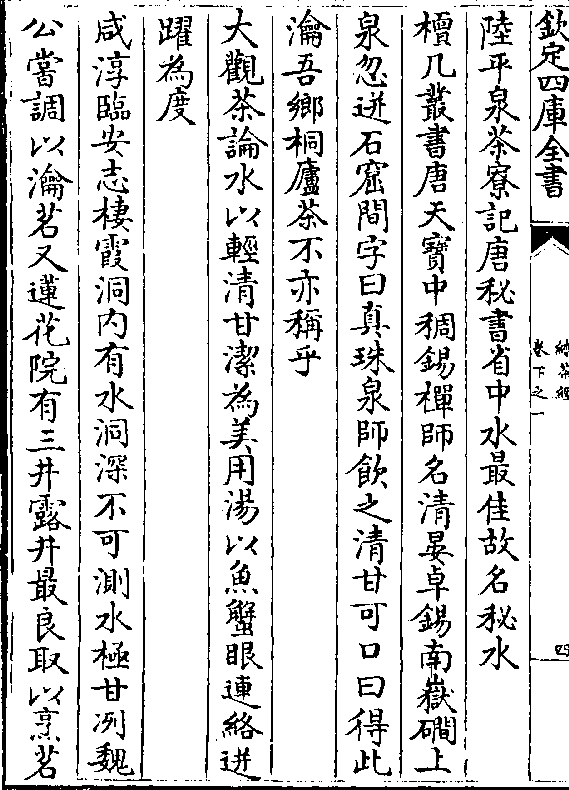 欽定四庫全書
續茶經
卷下之一
四
陸平泉茶寮記唐秘書省中水最佳故名秘水
檀几叢書唐天寶中稠錫樿師名清晏卓錫南嶽磵上
泉忽迸石窟間字曰真珠泉師飲之清甘可口曰得此
瀹吾鄉桐廬茶不亦稱乎
大觀茶論水以輕清甘潔為美用湯以魚蟹眼連絡迸
躍為度
咸淳臨安志棲霞洞内有水洞深不可測水極甘冽魏
公嘗調以瀹茗又蓮花院有三井露井最良取以烹茗